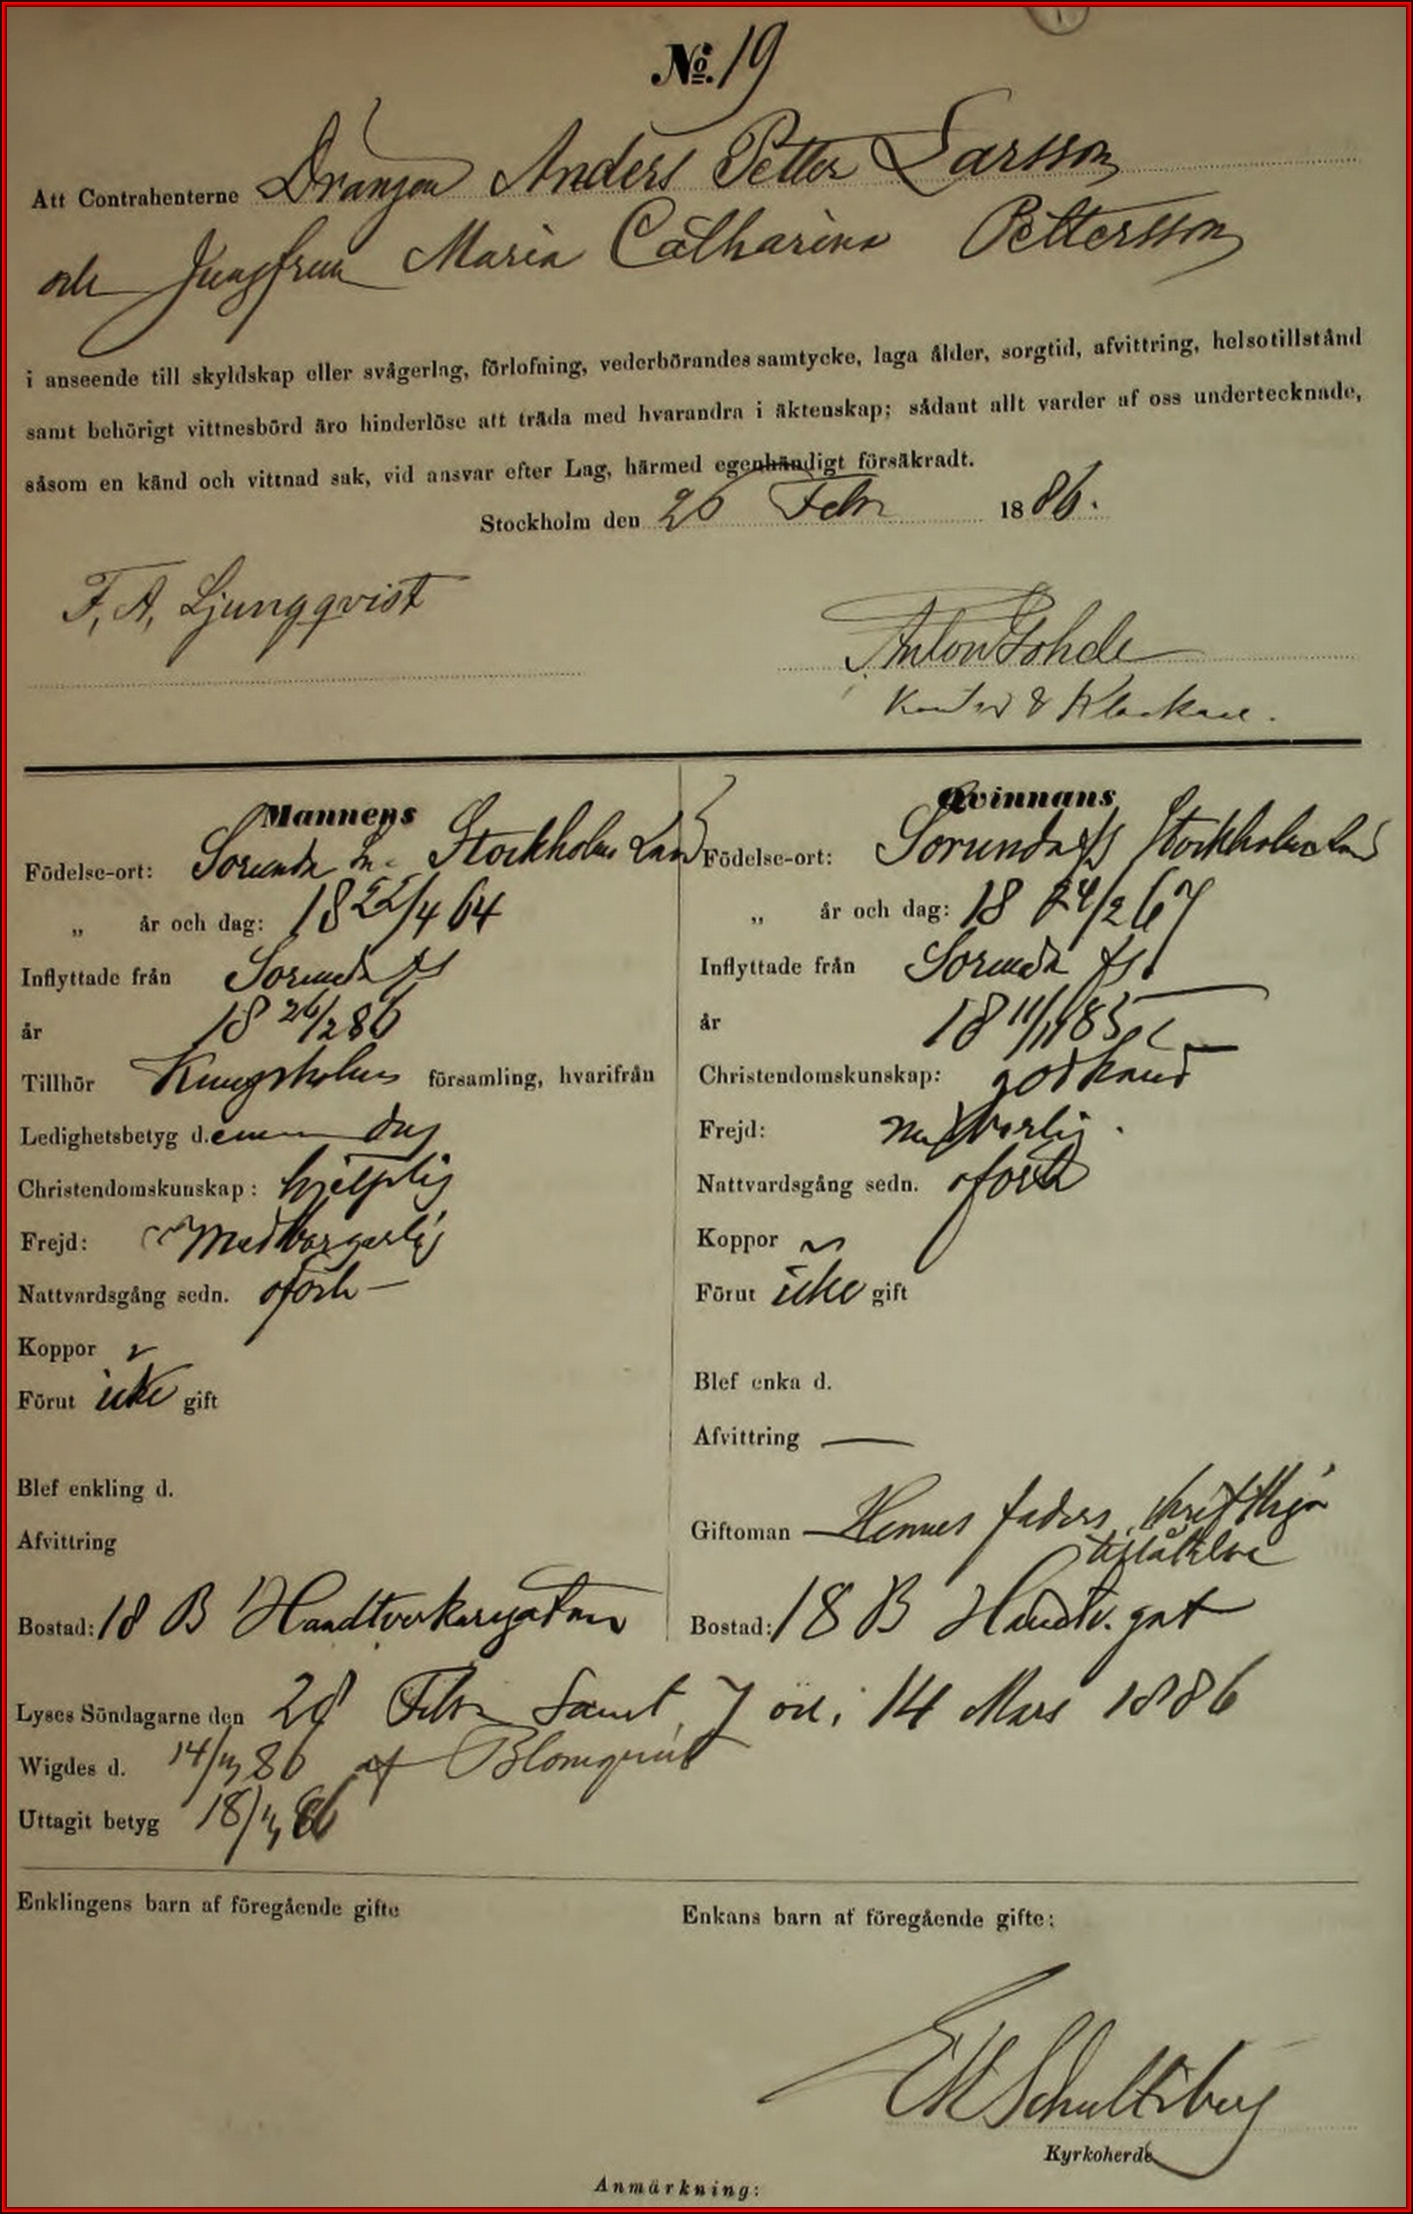 No. 19
Att Contrahenterne Drängen Anders Petter Larsson
och Jungfrun Maria Catharina Pettersson
i anseende till skyldskap eller svågerlag, förlofning, vederbörandes samtycke, laga ålder, sorgtid, afvittring, helsotillstånd
samt behörigt vittnesbörd äro hinderlöse att träda med hvarandra i äktenskap; sådant allt varder af oss undertecknade,
såsom en känd och vittnad sak, vid ansvar efter Lag, härmed egenhändigt försäkradt.
Stockholm den 26 Febr 1886.
F. A. Ljungqvist
Anton Gohde
Kantor & Klockare.
Mannens
Födelse-ort: Sorunda Stockholms Län
„ år och dag: 18 22/4 64
Inflyttade från Sorunda fs
år 18 26/2 86
Tillhör Kungsholms församling, hvarifrån
Ledighetsbetyg d. denna dag
Christendomskunskap: hjelplig
Frejd: Medborgerlig
Nattvardsgång sedn. oförh
Koppor
Förut icke gift
Blef enkling d.
Afvittring
Bostad: 18 B Handtverkaregatan
Qvinnans
Födelse-ort: Sorunda fs Stockholms Län
„ år och dag: 18 24/2 67
Inflyttade från Sorunda fs
år 18 11/11 85
Christendomskunskap: godkänd
Frejd: medborlig.
Nattvardsgång sedn. oförh
Koppor
Förut icke gift
Blef enka d.
Afvittring —
Giftoman Hennes faders skriftliga
tillåtelse
Bostad: 18 B Handtv. gat
Lyses Söndagarne den 28 Febr samt 7 och 14 Mars 1886
Wigdes d. 14/3 86 af Blomqvist
Uttagit betyg 18/3 86
Enklingens barn af föregående gifte
Enkans barn af föregående gifte:
Schultzberg
Kyrkoherde
Anmärkning: